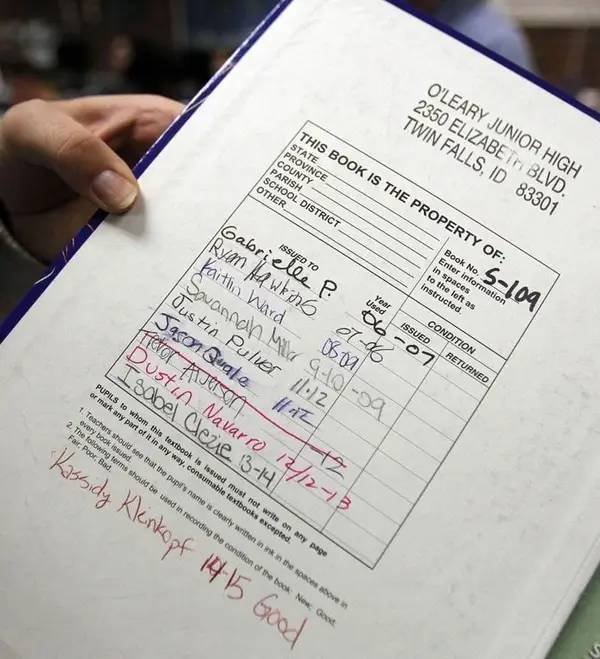 O'LEARY JUNIOR HIGH
2350 ELIZABETH BLVD.
TWIN FALLS, ID 83301
THIS BOOK IS THE PROPERTY OF:
STATE
PROVINCE
COUNTY
PARISH
SCHOOL DISTRICT
OTHER
Book No. S-109
Enter information
in spaces
to the left as
instructed.
ISSUED TO
Year
Used
CONDITION
ISSUED
RETURNED
Gabrielle P. 06-07
Ryan Hawkins 07-08
Kaitlin Ward 08-09
Savannah Miller 9-10-09
Justin Pulver 11-12
Jason Quale 11-12
Alverson 12
Dustin Navarro 12/12-13
Isabel Clezie 13-14
PUPILS to whom this textbook is issued must not write on any page
or mark any part of it in any way, consumable textbooks excepted.
1. Teachers should see that the pupil's name is clearly written in ink in the spaces above in
every book issued.
2. The following terms should be used in recording the condition of the book: New; Good;
Fair; Poor; Bad.
Kassidy Kleinkopf 14-15 Good